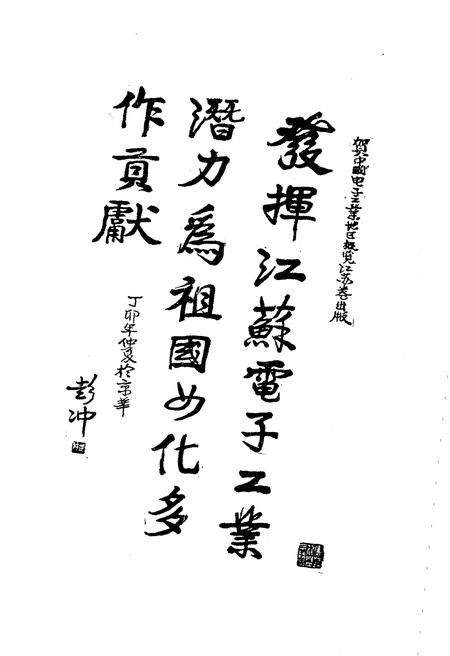 賀中國电子工業地区概览江苏卷出版
發揮江蘇電子工業
潛力爲祖國四化多
作貢獻
丁卯年仲夏於京華
彭冲